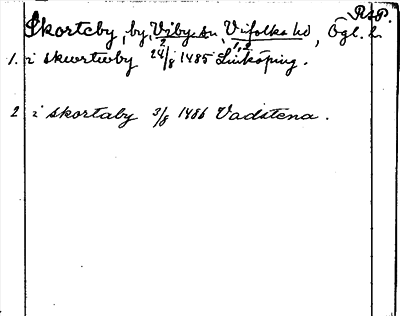 RAP.
Skorteby, by, Viby sn, Vifolka hd, Ögl. L
2 1, 2
1. i skwrtwby 24/8 1485 Linköping.
2 i skortaby 3/8 1486 Vadstena.